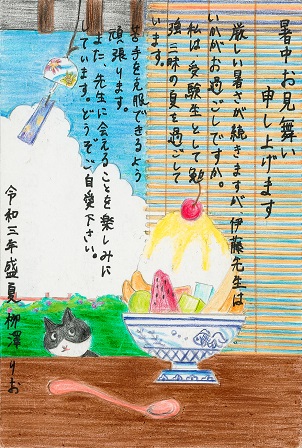 暑中お見舞い
申し上げます
厳しい暑さが続きますが、伊藤先生は
いかがお過ごしですか。
私は受験生として勉
強三昧の夏を過ごして
います。
苦手を克服できるよう
頑張ります。
また、先生に会えることを楽しみに
しています。どうぞご自愛下さい。
令和三年盛夏 柳澤りお